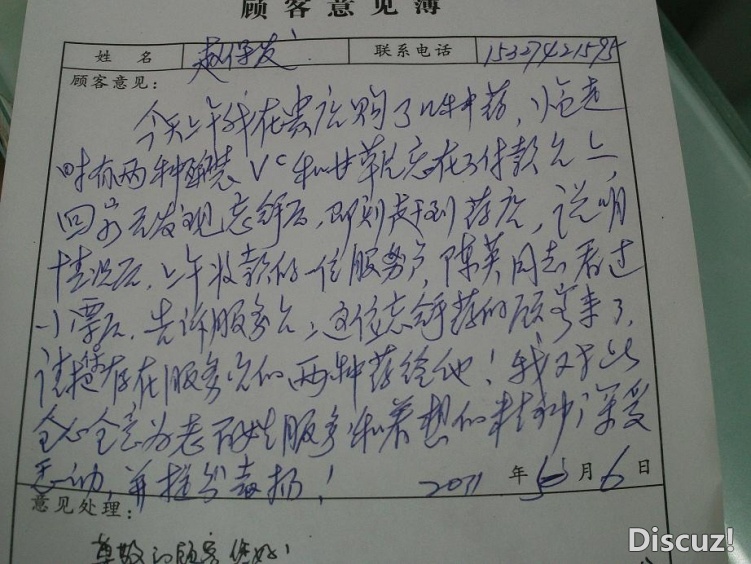 顾客意见簿
姓 名 赵保发 联系电话 15327421595
顾客意见:
今天上午我在贵店购了几种中药,临走
时有两种瓶装VC和甘草片忘在了付款台上,
回家后发现忘拿后,即刻赶到药店,说明
情况后,上午收款的一位服务员,陈英同志看过
小票后,告诉服务台:这位忘拿药的顾客来了,
请把存在服务台的两种药给他!我对于此
全心全意为老百姓服务和着想的精神,深受
感动,并提出表扬!
2011 年 月 6 日
意见处理:
尊敬的顾客您好!
Discuz!